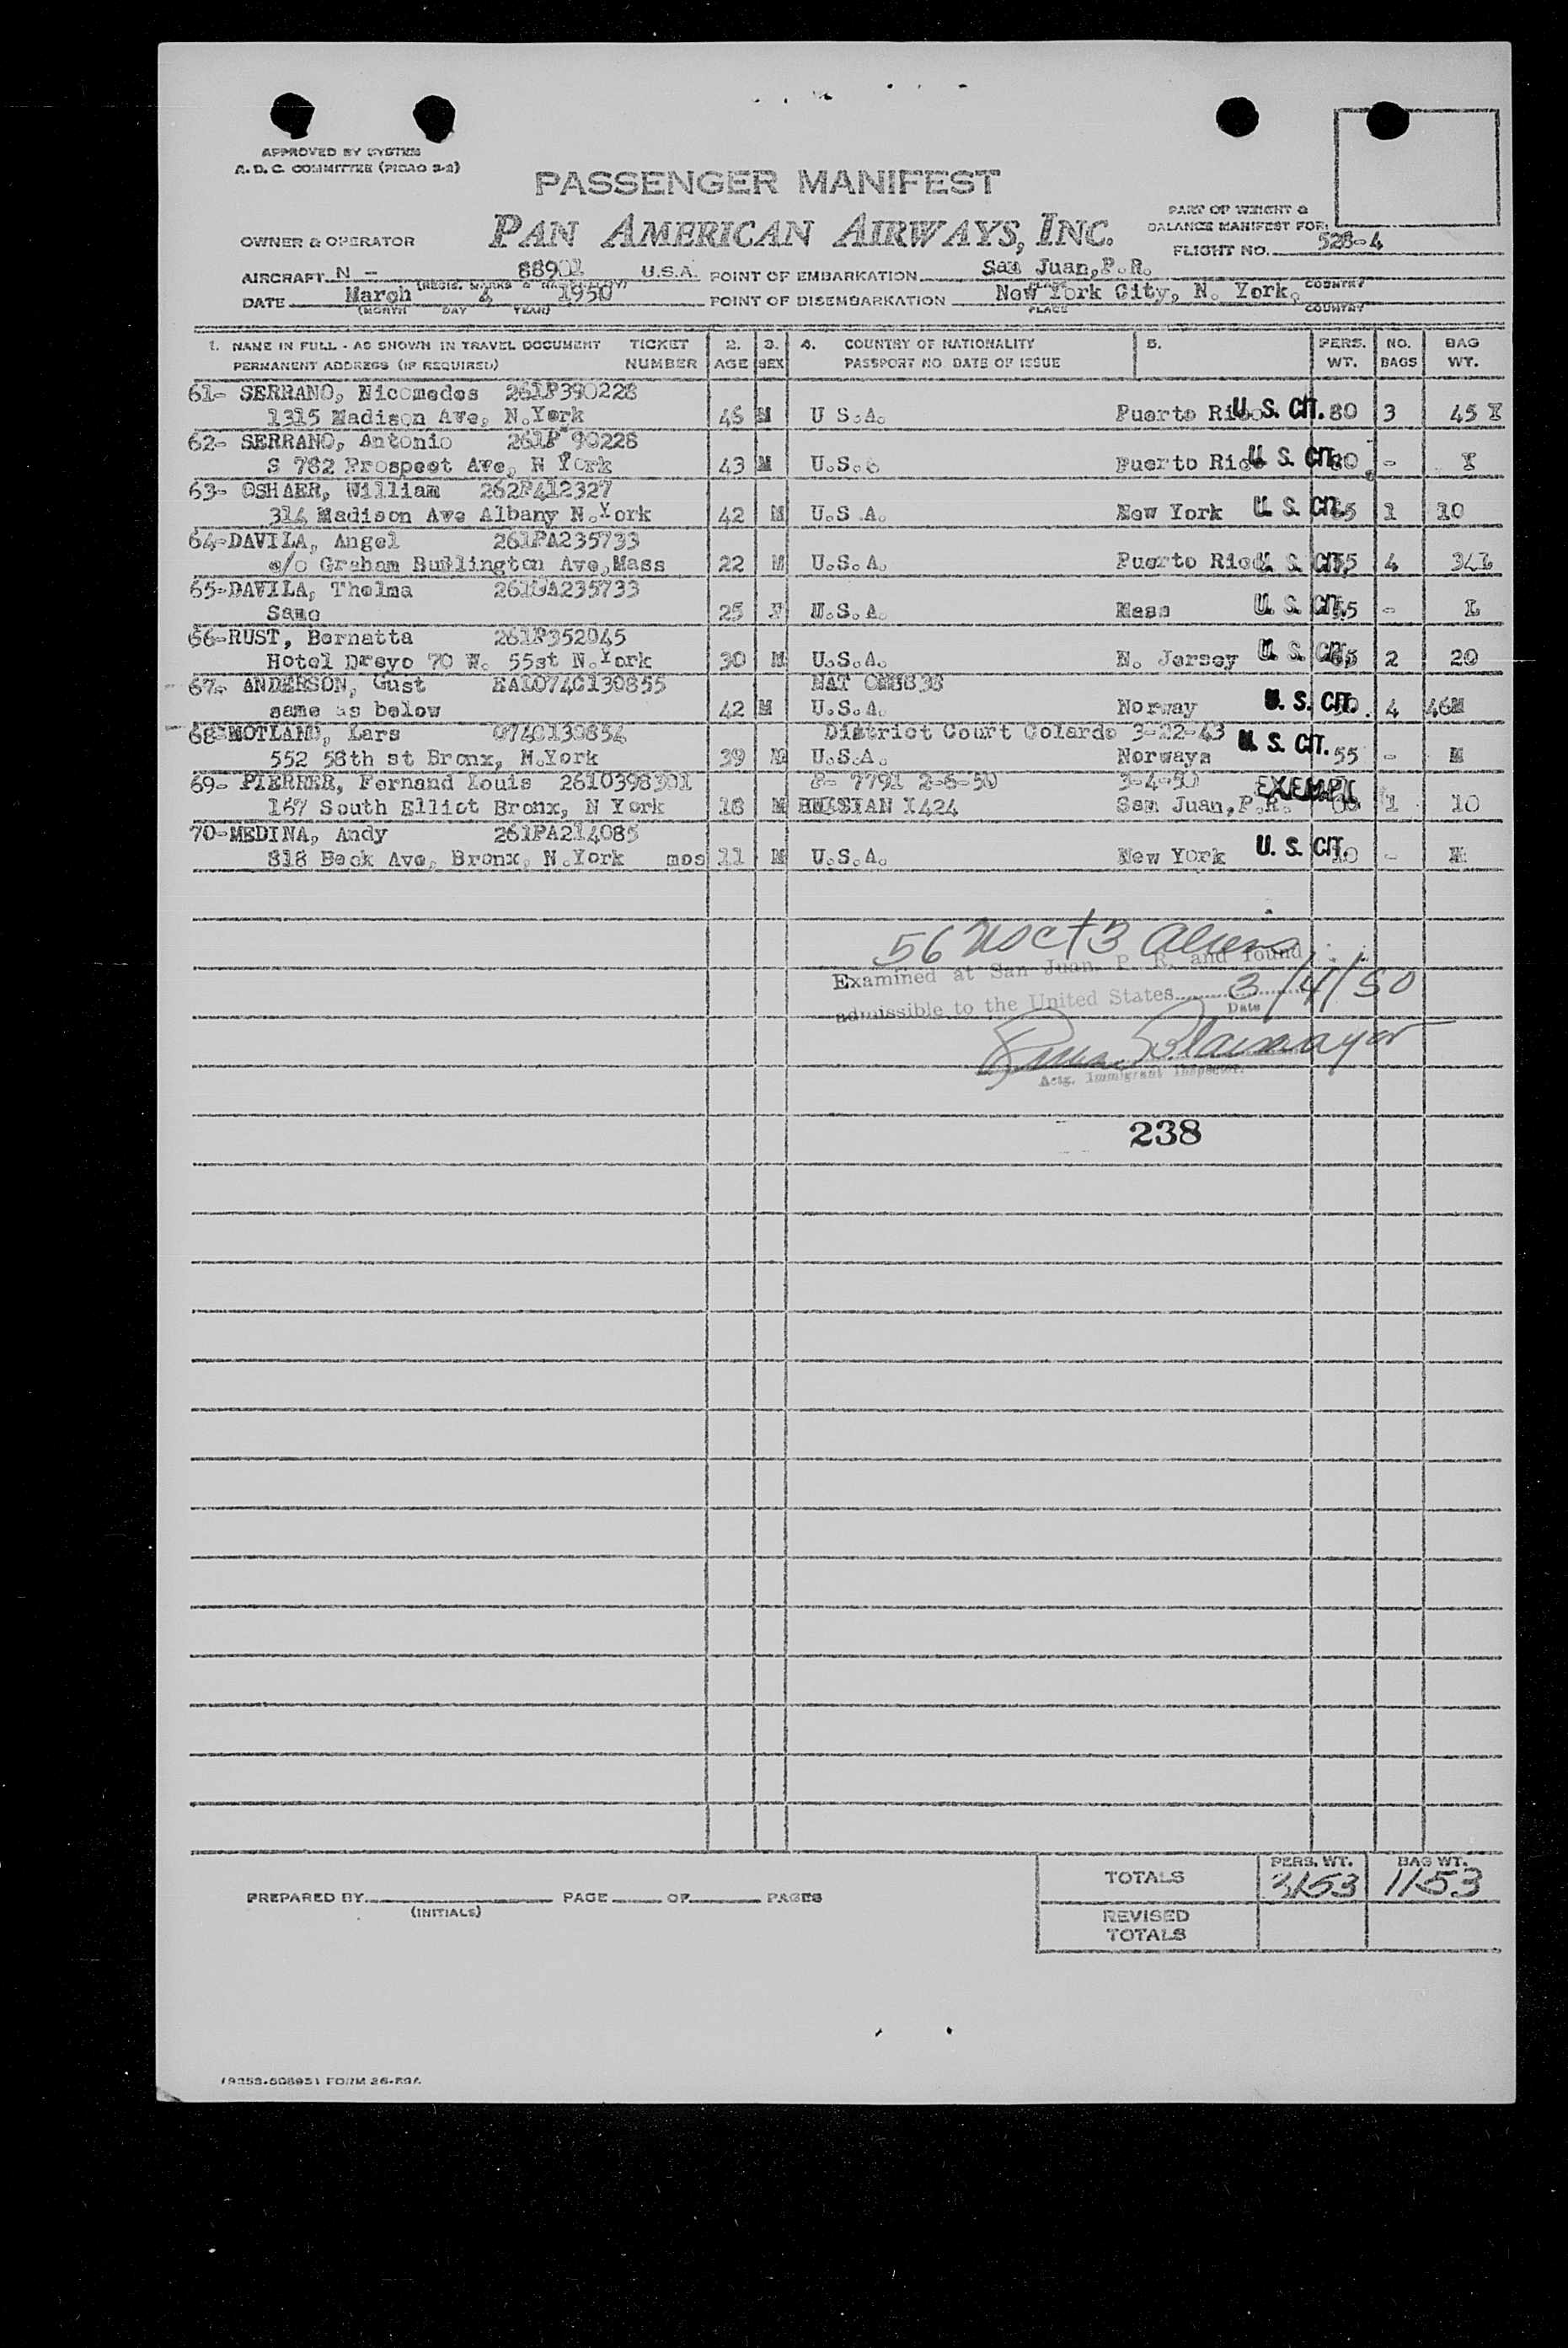 APPROVED BY SYSTEM
A. D. C. COMMITTEE (PICAO 2-2)
PASSENGER MANIFEST
PAN AMERICAN AIRWAYS, INC.
PART OF WEIGHT &
BALANCE MANIFEST FOR:
FLIGHT NO. 528-4
OWNER & OPERATOR
AIRCRAFT N - 88901 U.S.A. POINT OF EMBARKATION San Juan,P.R.
DATE March 4 1950 POINT OF DISEMBARKATION New York City, N. York.
(MONTH DAY YEAR) PLACE COUNTRY
1. NAME IN FULL - AS SHOWN IN TRAVEL DOCUMENT TICKET 2. 3. 4. COUNTRY OF NATIONALITY 5. PERS. NO. BAG
PERMANENT ADDRESS (IF REQUIRED) NUMBER AGE SEX PASSPORT NO DATE OF ISSUE WT. BAGS WT.
61- SERRANO, Nicomedes 261P390228
1315 Madison Ave, N.York 46 M U S.A. Puerto Rico U. S. CIT. 80 3 45 I
62- SERRANO, Antonio 261P 90228
S 782 Prospect Ave, N York 43 M U.S. Puerto Rico U. S. CIT. - I
63- OSHAER, William 262P412327
314 Madison Ave Albany N.York 42 M U.S A. New York U. S. CIT. 1 10
64-DAVILA, Angel 261PA235733
c/o Graham Burlington Ave,Mass 22 M U.S.A. Puerto Rico U. S. CIT. 4 34L
65-DAVILA, Thelma 261PA235733
Same 25 F U.S.A. Mass U. S. CIT. - L
66-RUST, Bernatta 261P352045
Hotel Dreyc 70 W. 55st N.York 30 M U.S.A. N. Jersey U. S. CIT. 2 20
67- ANDERSON, Gust EAL074C130855 NAT
same as below 42 M U.S.A. Norway U. S. CIT. 4 46M
68-MOTLAND, Lars 074C130854 District Court Colardo 3-22-43
552 58th st Bronx, N.York 39 M U.S.A. Norways U. S. CIT. 55 - M
69- PIERRER, Fernand Louis 2610398301 P- 7791 2-6-50 3-4-50
167 South Elliot Bronx, N York 18 M I424 San Juan,P.R. EXEMPT 1 10
70-MEDINA, Andy 261PA214085
818 Beck Ave, Bronx, N.York mos 11 M U.S.A. New York U. S. CIT. 10 - M
56 USC + 3 Aliens
Examined at San Juan, P. R. and found
admissible to the United States 3/4/50
Date
Actg. Immigrant Inspector.
238
TOTALS PERS. WT. 3153 BAG WT. 1153
PREPARED BY PAGE OF PAGES
(INITIALS)
REVISED
TOTALS